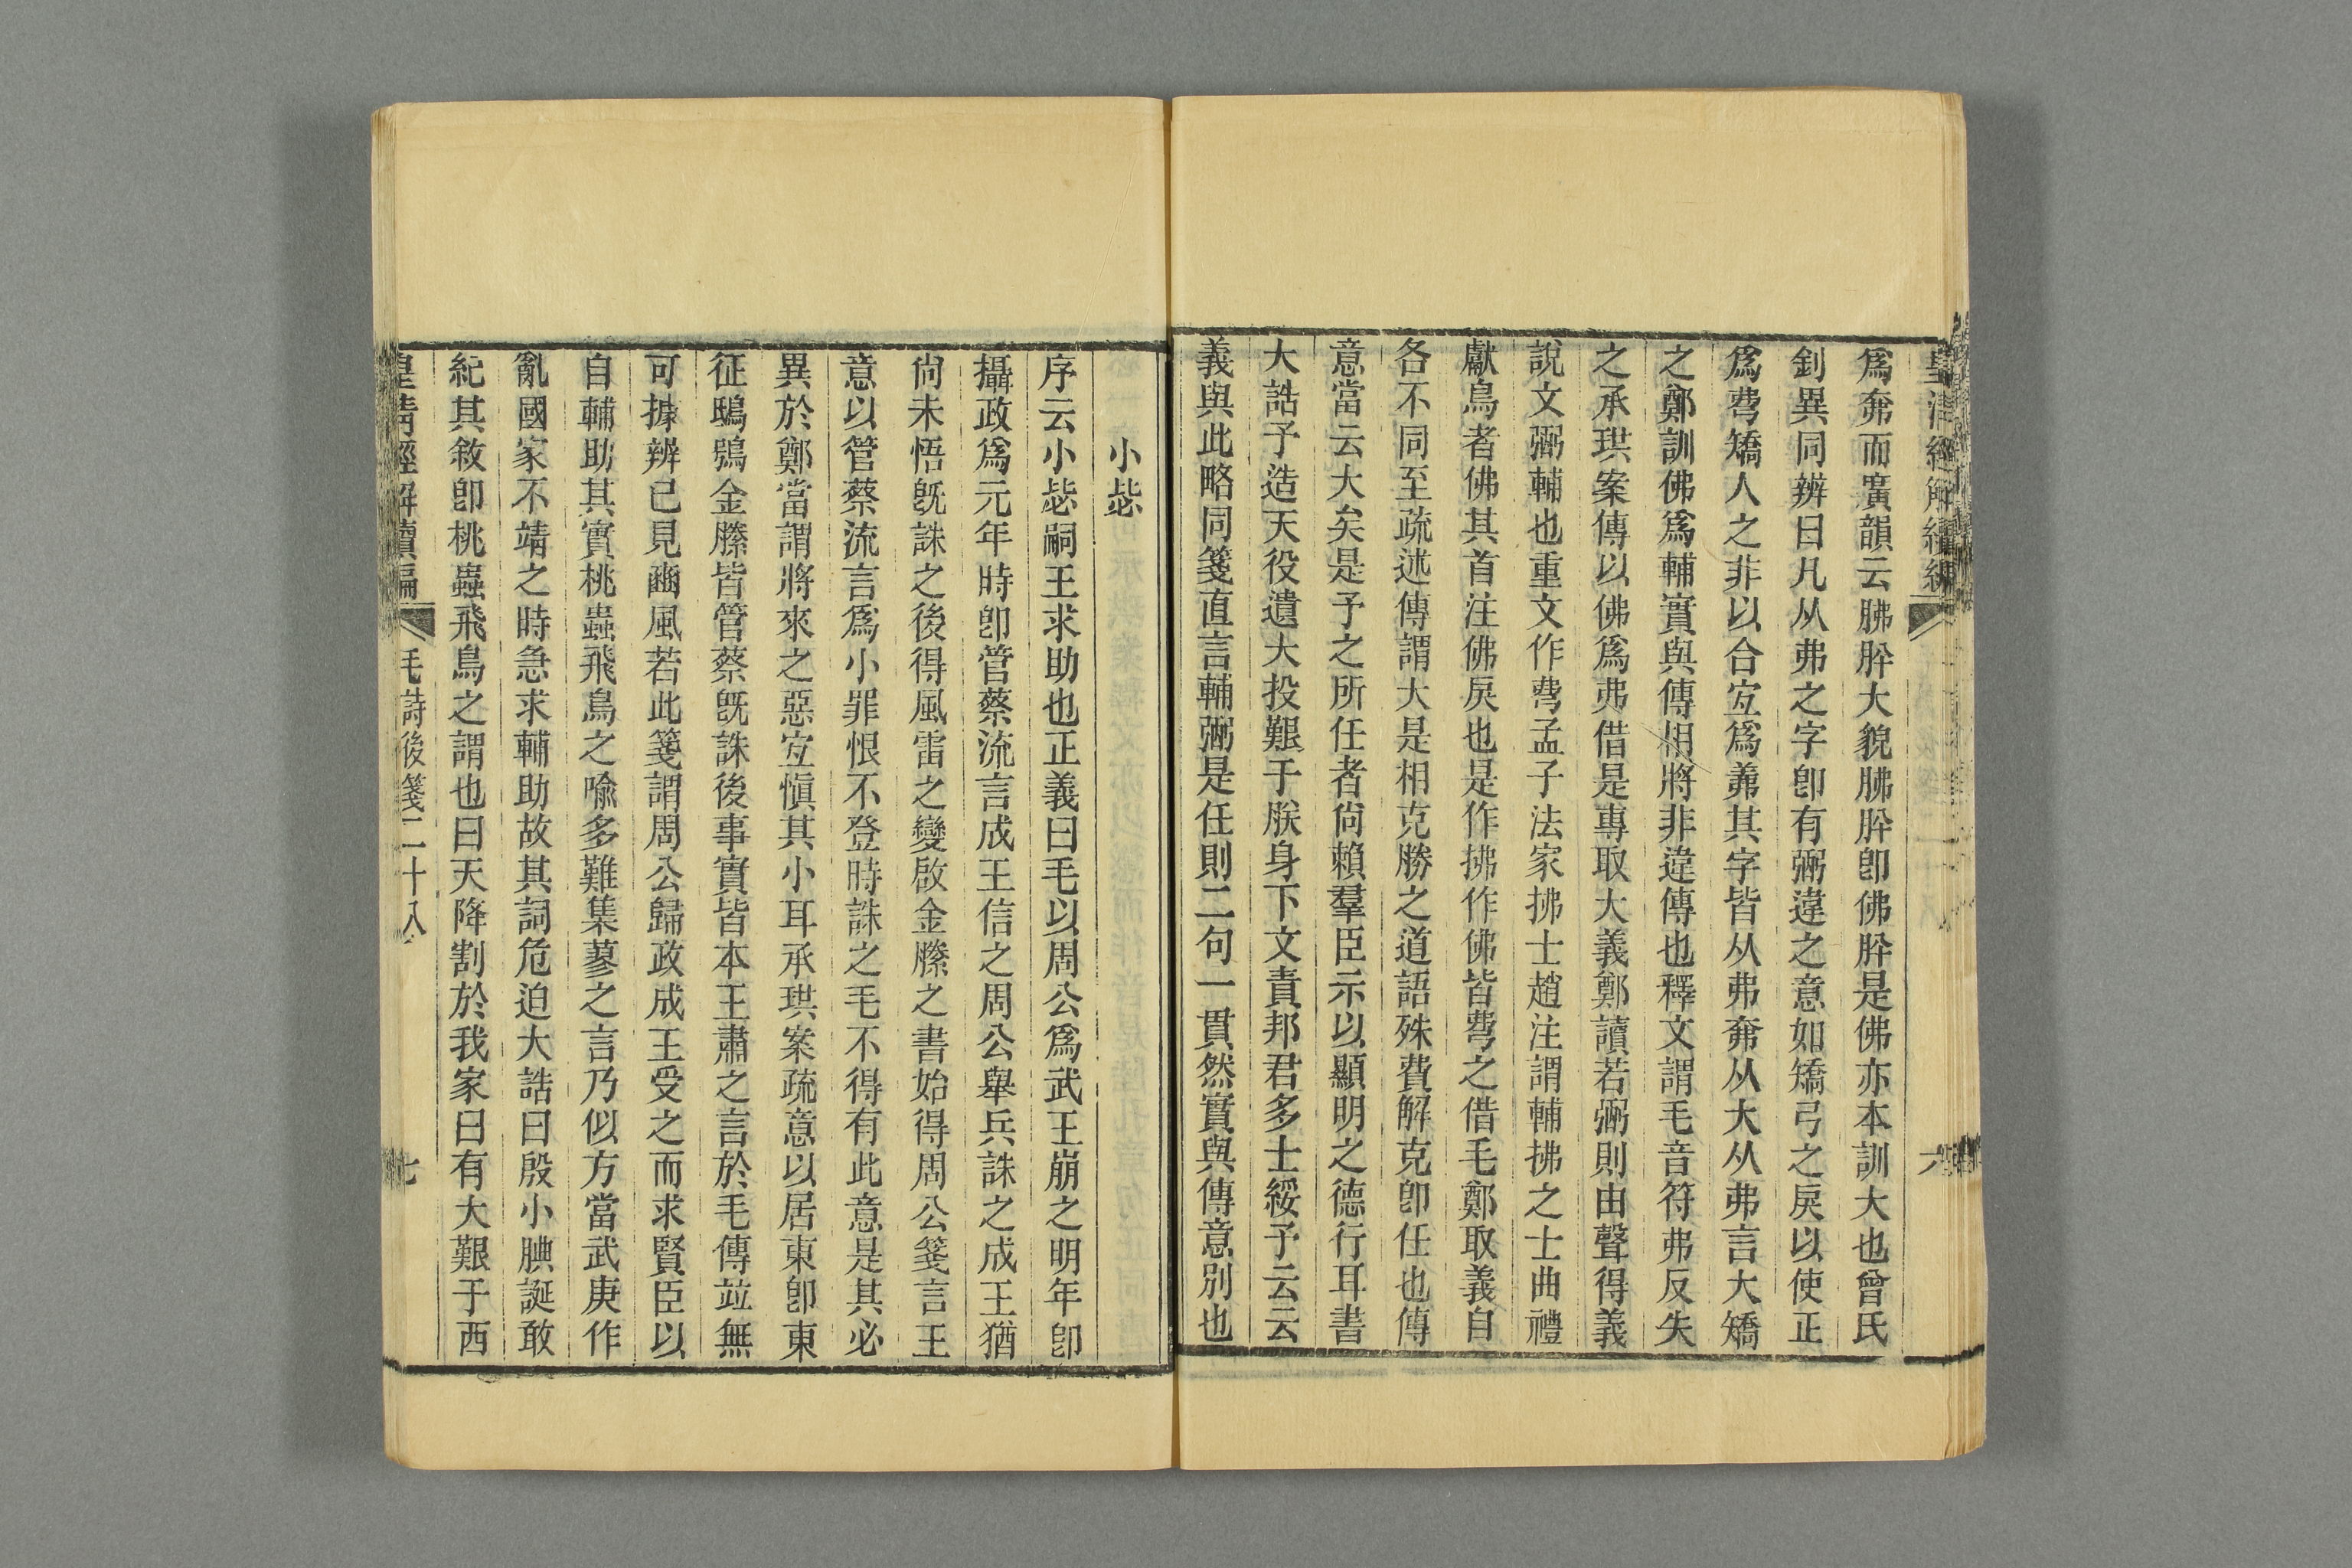 皇清經解續編
六
爲奔而廣韻云胇肸大貌胇肸卽佛肸是佛亦本訓大也曾氏
釗異同辨曰凡从弗之字卽有弼違之意如矯弓之戾以使正
爲㢸矯人之非以合宐爲弼其字皆从弗奔从大从弗言大矯
之鄭訓佛爲輔實與傳相將非違傳也釋文謂毛音符弗反失
之承珙案傳以佛爲弗借是專取大義鄭讀若弼則由聲得義
說文弼輔也重文作㢸孟子法家拂士趙注謂輔拂之士曲禮
獻鳥者佛其首注佛戾也是作拂作佛皆㢸之借毛鄭取義自
各不同至疏述傳謂大是相克勝之道語殊費解克卽任也傳
意當云大矣是予之所任者尙賴羣臣示以顯明之德行耳書
大誥予造天役遺大投艱于朕身下文責邦君多士綏予云云
義與此略同箋直言輔弼是任則二句一貫然實與傳意別也
小毖
序云小毖嗣王求助也正義曰毛以周公爲武王崩之明年卽
攝政爲元年時卽管蔡流言成王信之周公舉兵誅之成王猶
尙未悟旣誅之後得風雷之變啟金縢之書始得周公箋言王
意以管蔡流言爲小罪恨不登時誅之毛不得有此意是其必
異於鄭當謂將來之惡宐愼其小耳承珙案疏意以居東卽東
征鴟鴞金縢皆管蔡旣誅後事實皆本王肅之言於毛傳竝無
可據辨已見豳風若此箋謂周公歸政成王受之而求賢臣以
自輔助其實桃蟲飛鳥之喩多難集蓼之言乃似方當武庚作
亂國家不靖之時急求輔助故其詞危迫大誥曰殷小腆誕敢
紀其敘卽桃蟲飛鳥之謂也曰天降割於我家曰有大艱于西
皇清經解續編
毛詩後箋二十八
七